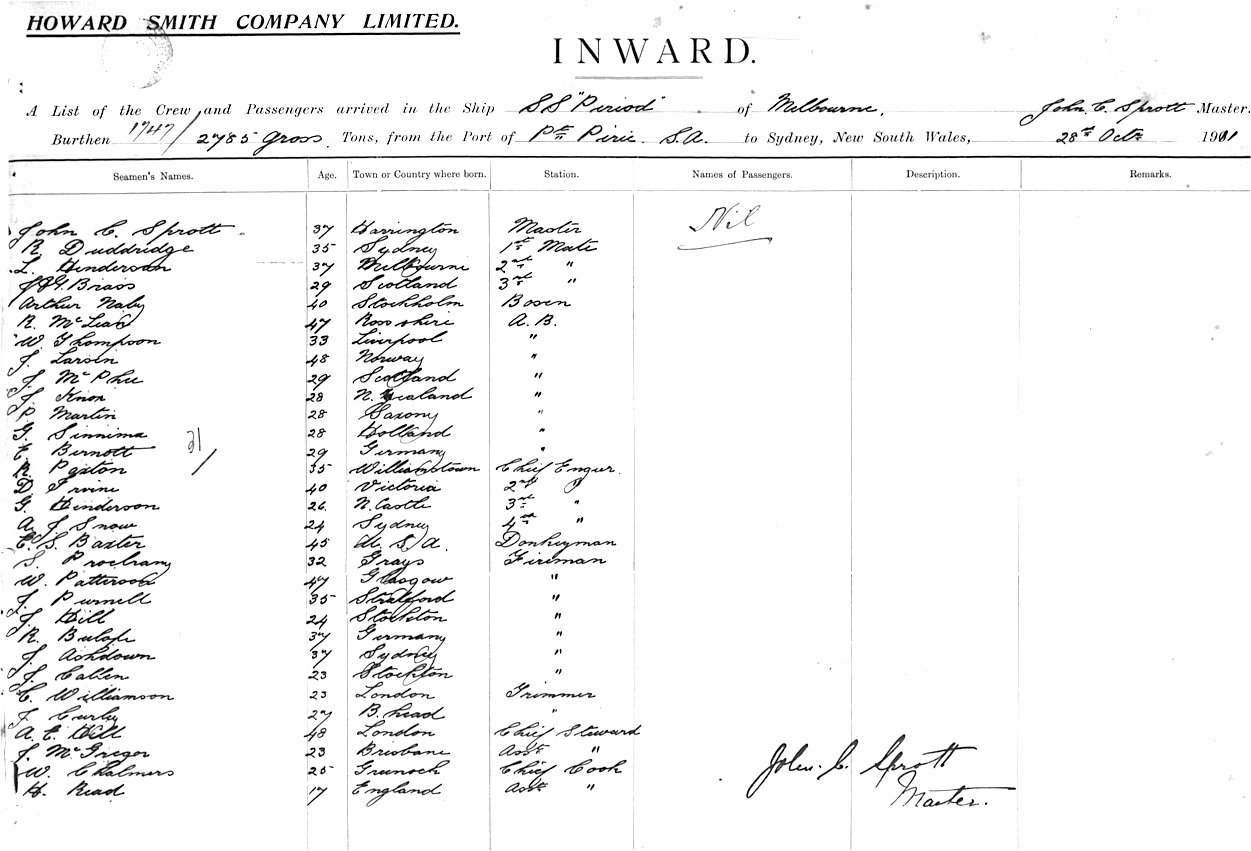 HOWARD SMITH COMPANY LIMITED.
INWARD.
A List of the Crew and Passengers arrived in the Ship SS "Period" of Melbourne, John C. Sprott Master.
Burthen 1747/2785 gross Tons, from the Port of Pt Pirie S.A. to Sydney, New South Wales, 28th Octr 1901
Seamen's Names. Age. Town or Country where born. Station. Names of Passengers. Description. Remarks.
Nil
John C. Sprott 37 Harrington Master
R. Duddridge 35 Sydney 1st Mate
L. Henderson 37 Melbourne 2nd "
Brass 29 Scotland 3rd "
Arthur 40 Stockholm Bosen
R. McLean 47 Ross shire A.B.
W. Thompson 33 Liverpool "
J. Larsen 48 Norway "
J. McPhee 29 Scotland "
J. Knox 28 N. Zealand "
P. Martin 28 Saxony "
G. Sinnima 28 Holland "
E. Bernott 29 Germany "
31/
R. Paxton 35 Williamstown Chief Engnr.
D. Irvine 40 Victoria 2nd "
G. Henderson 26 N. Castle 3rd "
A. J. Snow 24 Sydney 4th "
C. S. Baxter 45 U.S.A. Donkeyman
S. 32 Grays Fireman
W. Patterson 47 Glasgow "
J. Purnell 35 Stratford "
J. Hill 24 Stockton "
R. 37 Germany "
J. Ashdown 37 Sydney "
J. Callen 23 Stockton "
C. Williamson 23 London Trimmer
J. Curley 27 B. head "
A. E. Hill 48 London Chief Steward
J. McGregor 23 Brisbane Asst "
W. Chalmers 25 Greenock Chief Cook
H. Read 17 England Asst "
John. C. Sprott
Master.